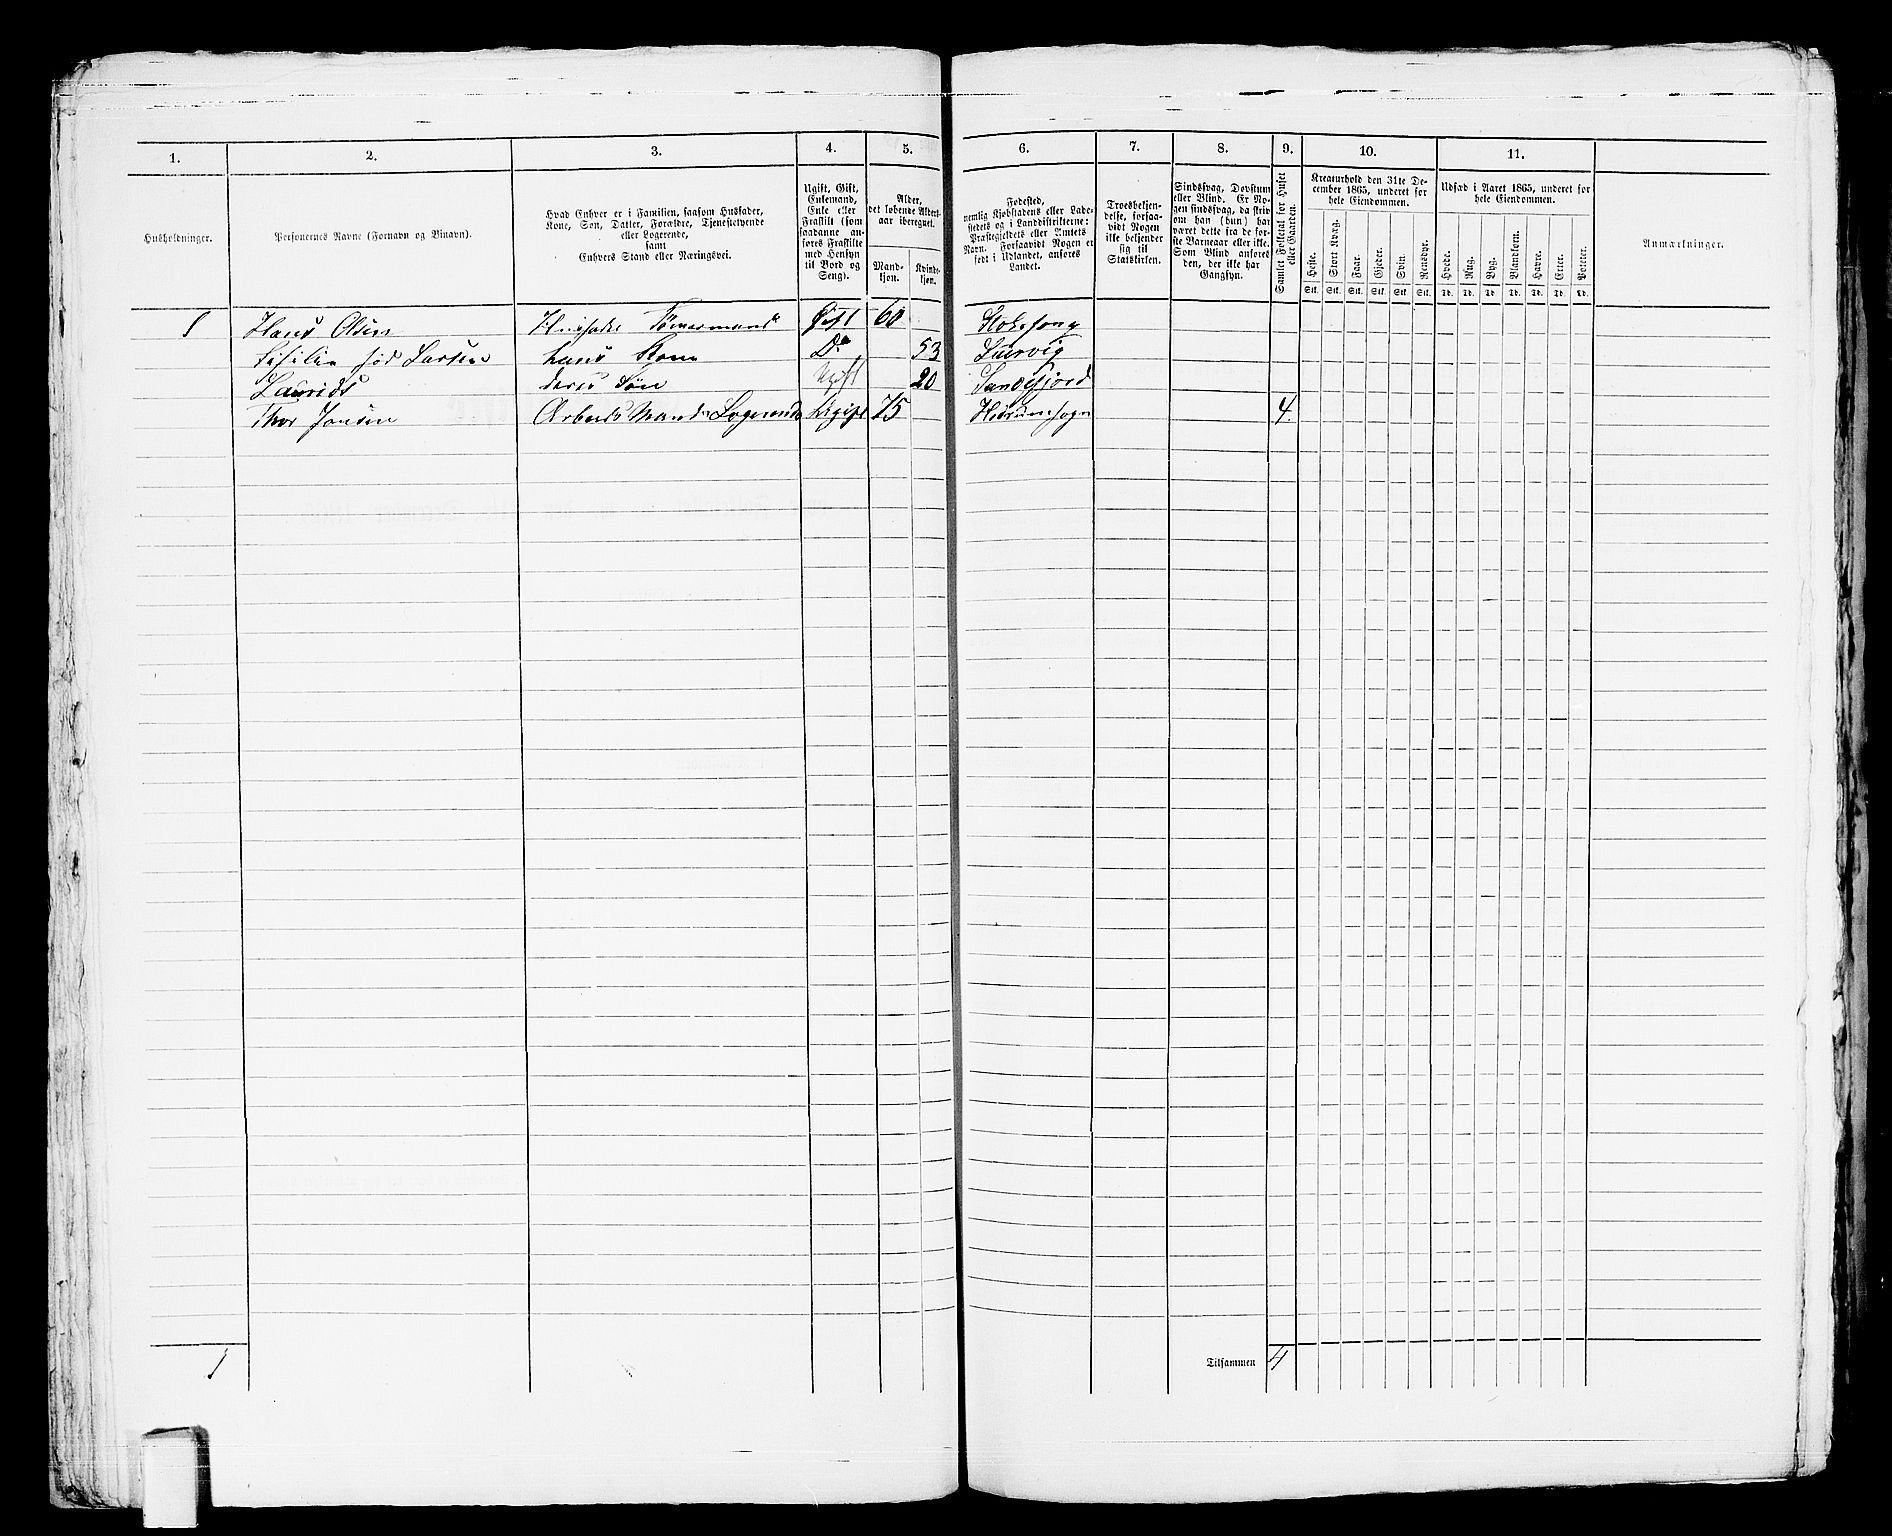 1. 2. 3. 4. 5. 6. 7. 8. 9. 10. 11.
Husholdninger.
Personernes Navne (Fornavn og Binavn).
Hvad Enhver er i Familien, saasom Husfader,
Kone, Søn, Datter, Forældre, Tjenestetyende
eller Logerende,
samt
Enhvers Stand eller Næringsvei.
Ugift, Gift,
Enkemand,
Enke eller
Fraskilt (som
saadanne an-
føres Fraskilte
med Hensyn
til Bord og
Seng).
Alder,
det løbende Alders-
aar iberegnet.
Mand-
kjøn.
Kvinde-
kjøn.
Fødested,
nemlig Kjøbstadens eller Lade-
stedets og i Landdistrikterne:
Præstegjeldets eller Amtets
Navn. Forsaavidt Nogen er
født i Udlandet, anføres
Landet.
Troesbekjen-
delse, forsaa-
vidt Nogen
ikke bekjender
sig til
Statskirken.
Sindssvag, Døvstum
eller Blind. Er No-
gen sindssvag, da skriv
om han (hun) har
været dette fra de for-
ste Barneaar eller ikke.
Som Blind ansøres
den, der ikke har
Gangsyn.
Samlet Folketal for Huset
eller Gaarden.
Kreaturhold den 31te De-
cember 1865, underet for
hele Eiendommen.
Heste. Stort Kvæg. Faar. Gjeder. Svin. Rensdyr.
Stk. Stk. Stk. Stk. Stk. Stk.
Udsæd i Aaret 1865, underet for
hele Eiendommen.
Hvede. Rug. Byg. Blandkorn. Havre. Erter. Poteter.
Td. Td. Td. Td. Td. Td. Td.
Anmærkninger.
1 Hans Olsen Husfader Tømermand Gift 60 Stokesogn
født Larsen hans Kone Do 53 Laurvig
Laurids deres Søn Ugift 20 Sandefjord
Thor Jensen Arbeids Mand Logerende Ugift 75 4
1 Tilsammen 4